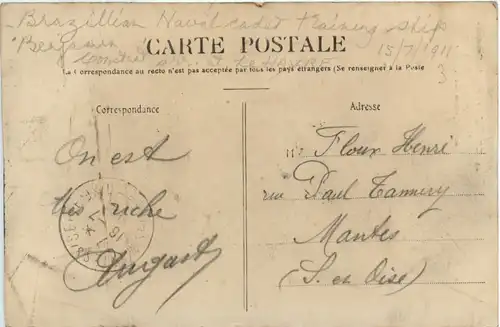 -Brazillian Naval cadet training ship
"Benjamin
Constru at Le HAVRE
15/7/1911
3
CARTE POSTALE
La Correspondance au recto n'est pas acceptée par tous les pays étrangers (Se renseigner à la Poste
Correspondance
Adresse
On est
très riche
August
Mr Floux Henri
rue Paul Tannery
Mantes
(S. et Oise)